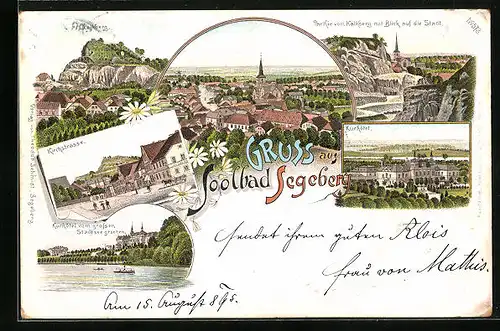 Parthie vom Kalkberg mit Blick auf die Stadt.
Kirchstrasse.
Kurhôtel.
GRUSS aus
Soolbad Segeberg
Kurhôtel vom grossen
Segeberg
sendet ihrem guten Alois
Frau von Mathis.
Am 15. August 895.